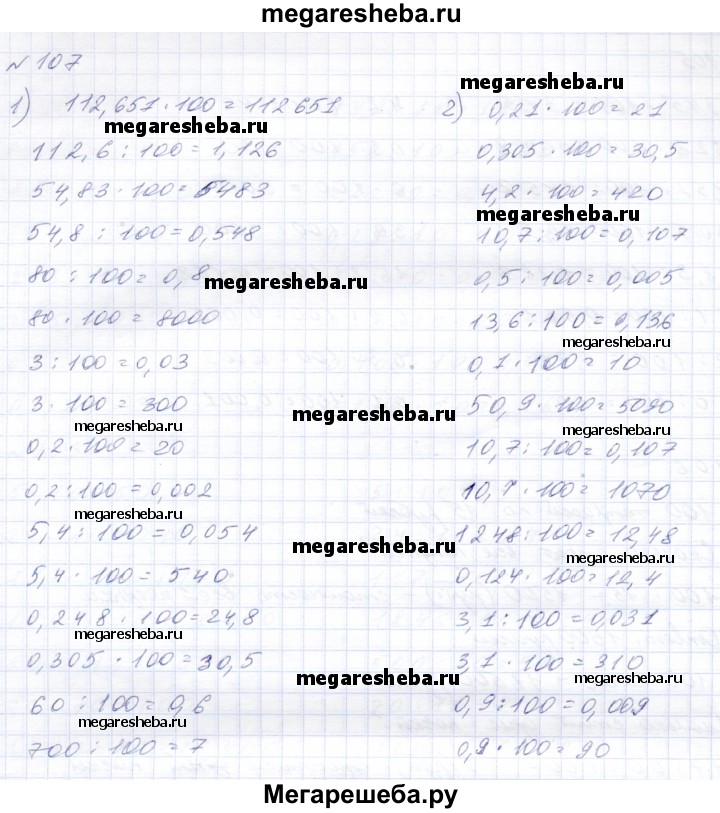 megaresheba.ru
№ 107
1) 112,651 · 100 = 112651
megaresheba.ru
112,6 : 100 = 1,126
54,83 · 100 = 5483
54,8 : 100 = 0,548
80 : 100 = 0,8
megaresheba.ru
80 · 100 = 8000
3 : 100 = 0,03
3 · 100 = 300
megaresheba.ru
megaresheba.ru
0,2 · 100 = 20
0,2 : 100 = 0,002
megaresheba.ru
5,4 : 100 = 0,054
megaresheba.ru
5,4 · 100 = 540
0,248 · 100 = 24,8
megaresheba.ru
0,305 · 100 = 30,5
megaresheba.ru
60 : 100 = 0,6
megaresheba.ru
700 : 100 = 7
megaresheba.ru
2) 0,21 · 100 = 21
0,305 · 100 = 30,5
4,2 · 100 = 420
megaresheba.ru
10,7 : 100 = 0,107
0,5 : 100 = 0,005
13,6 : 100 = 0,136
megaresheba.ru
0,1 · 100 = 10
50,9 · 100 = 5090
megaresheba.ru
10,7 : 100 = 0,107
10,7 · 100 = 1070
1248 : 100 = 12,48
megaresheba.ru
0,124 · 100 = 12,4
3,1 : 100 = 0,031
megaresheba.ru
3,1 · 100 = 310
megaresheba.ru
0,9 : 100 = 0,009
0,9 · 100 = 90
Мегарешеба.ру